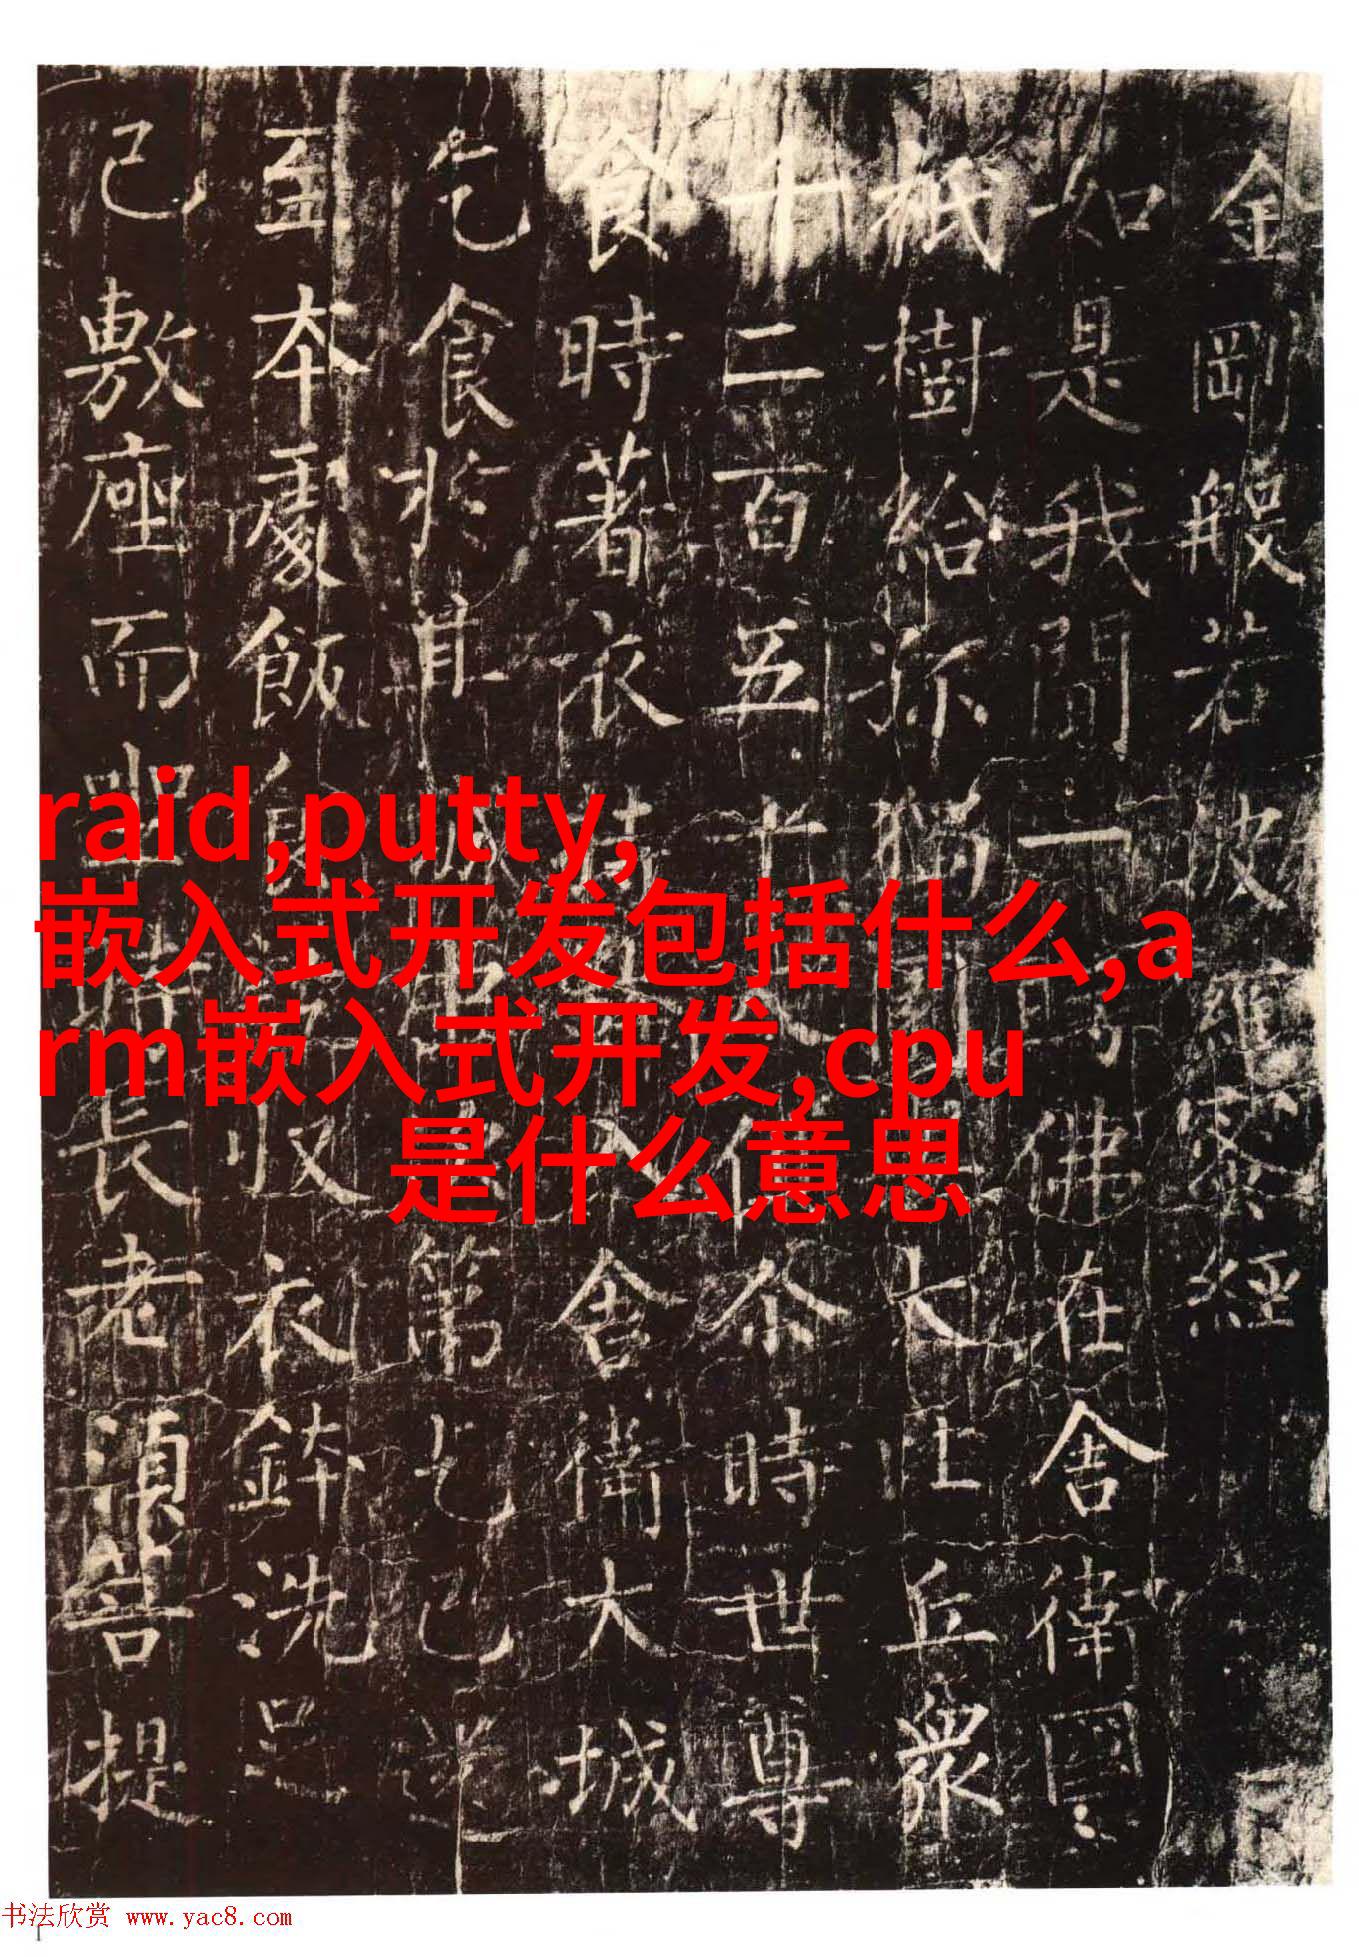 金剛般若波羅蜜經
如是我聞一時佛在舍衛國
祇樹給孤獨園大比丘眾
十二百五十人俱尒時世尊
食時著衣持入舍衛大城
乞食於其城中第乞已還
至本處飯食收衣鉢洗足
已敷座而坐時長老須菩提
raid,putty,
嵌入式开发包括什么,a
rm嵌入式开发,cpu
是什么意思
书法欣赏 www.yac8.com